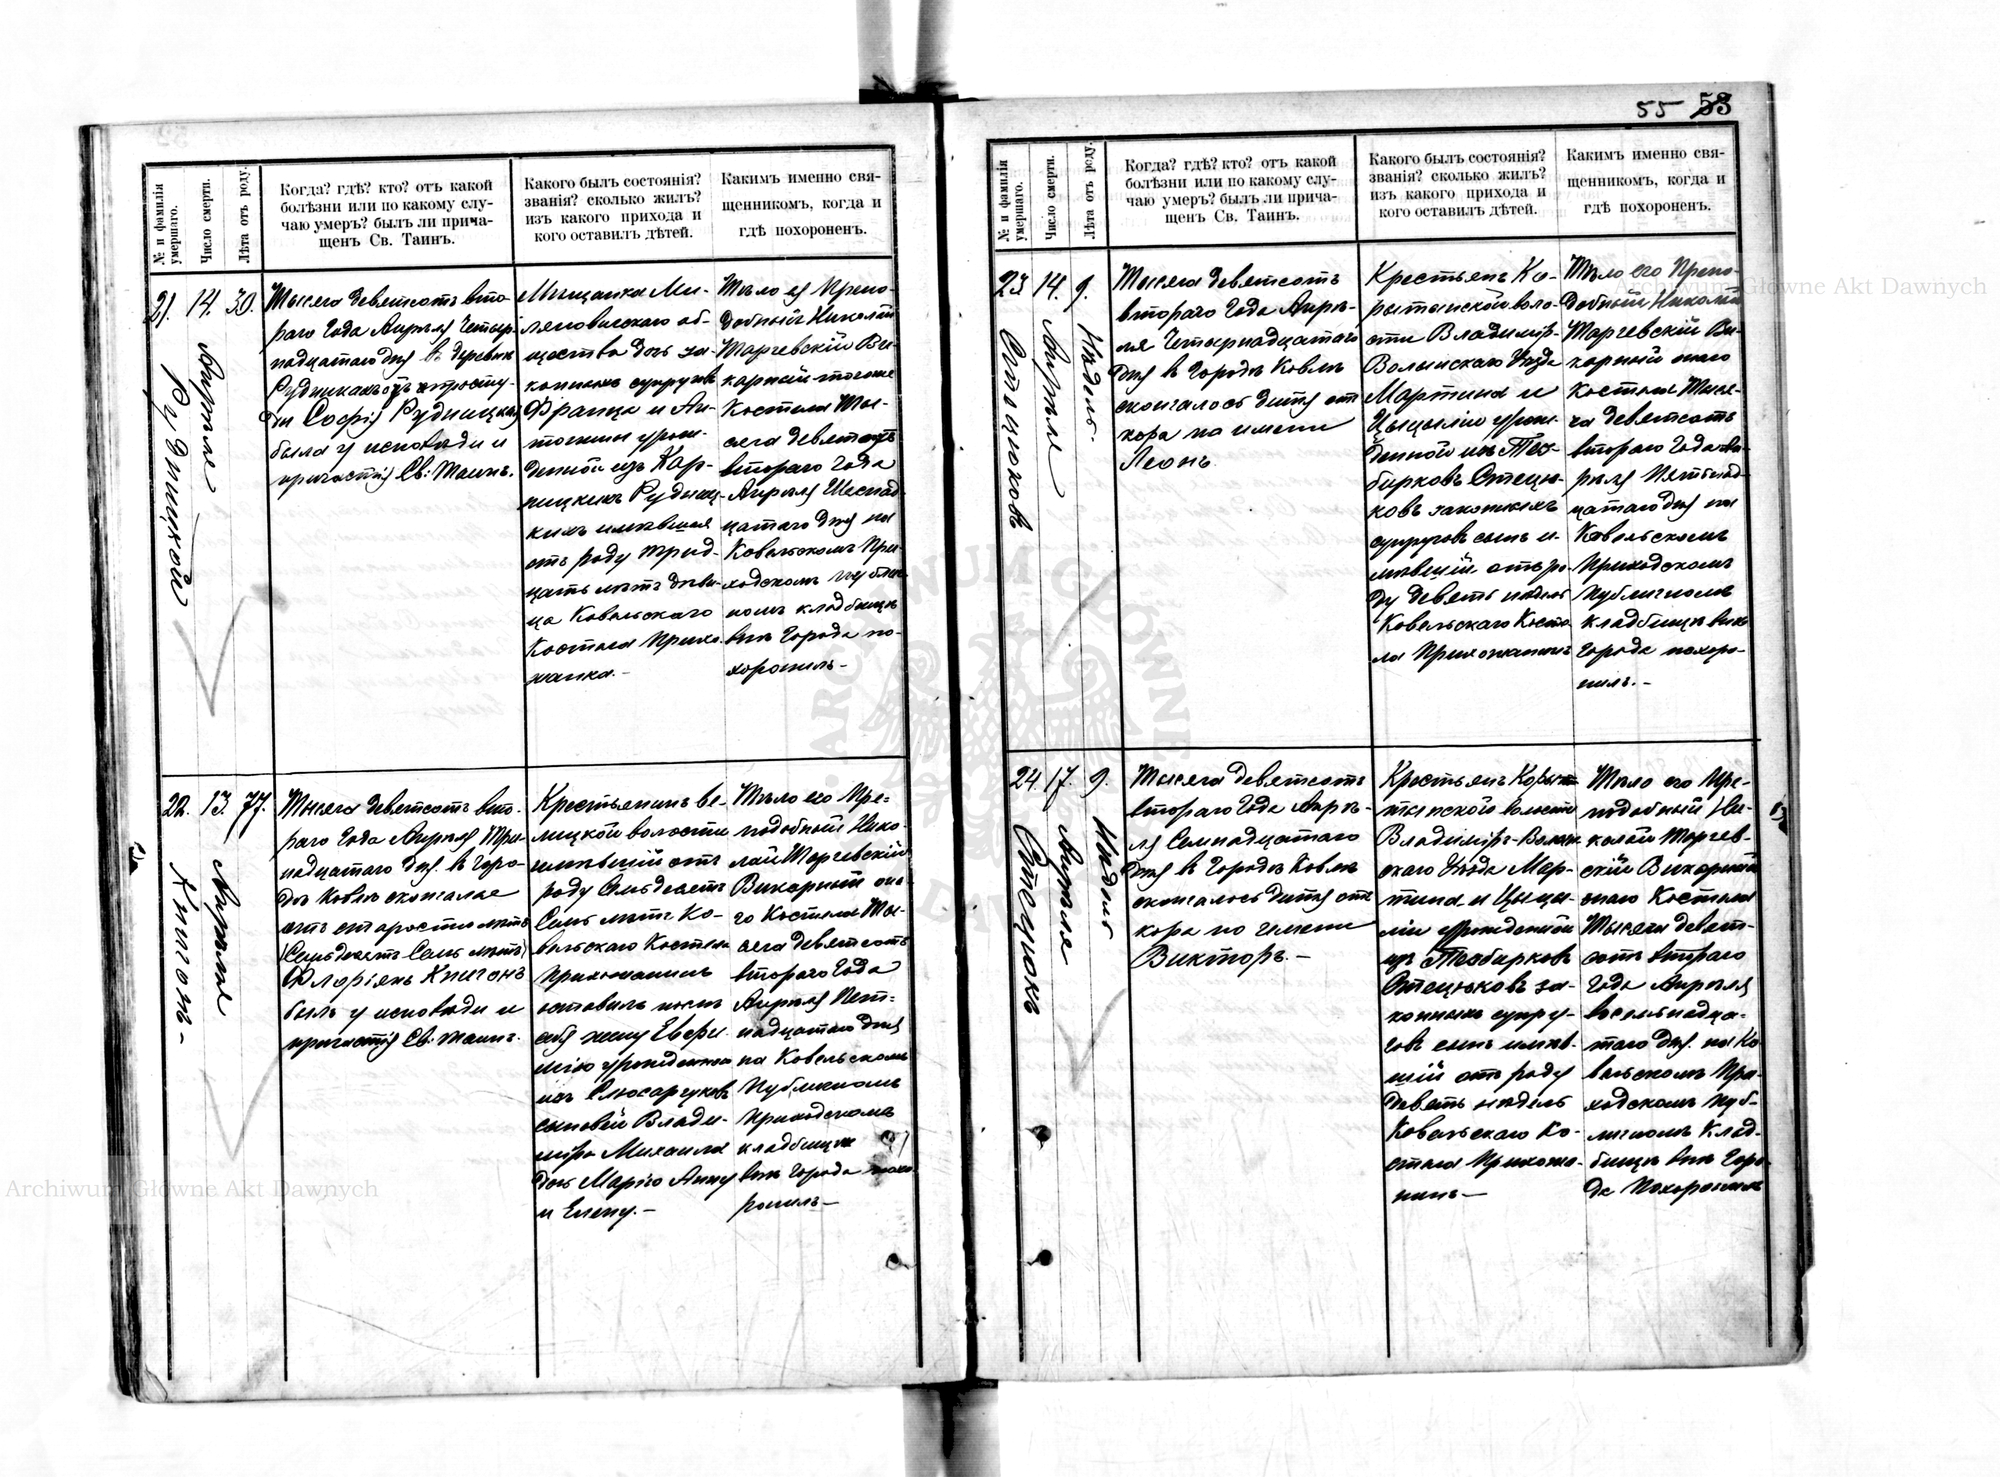 55 53
№ и фамилія умершаго.
Число смерти.
Лѣта отъ роду.
Когда? гдѣ? кто? отъ какой
болѣзни или по какому слу-
чаю умеръ? былъ ли прича-
щенъ Св. Таинъ.
Какого былъ состоянія?
званія? сколько жилъ?
изъ какого прихода и
кого оставилъ дѣтей.
Каким именно свя-
щенникомъ, когда и
гдѣ похороненъ.
21.
Рудницкой
14.
Апрѣля
30.
Тысяча девятсотъ вто-
раго Года Апрѣля Четыр-
надцатаго дня въ деревнѣ
Софія Рудницкая
была у исповѣди и
причастія Св: Таинъ.
Мѣщанка Ми-
ляновискаго об-
щества дочь за-
конныхъ супруговъ
Франца и Ан-
тонины урож-
денной изъ Кар-
пицкихъ Рудниц-
кихъ имѣвшая
отъ роду трид-
цать лѣтъ дѣви-
ца Ковельскаго
Костела Прихо-
жанка.-
Тѣло ея Препо-
добный Николай
Торчевскій Ви-
карный тогоже
Костела Ты-
сяча девятсотъ
втораго Года
Апрѣля Шеснад-
цатаго дня на
Ковельскомъ При-
ходскомъ публич-
номъ кладбищѣ
внѣ Города по-
хоронилъ-
22.
Книгонъ-
13.
Апрѣля
77.
Тысяча девятсотъ вто-
раго Года Апрѣля Три-
надцатаго дня въ Горо-
дѣ Ковлѣ скончался
отъ старости лѣтъ
(Семьдесятъ Семь лѣтъ)
Флоріянъ Книгонъ
былъ у исповѣди и
причастія Св: Таинъ.
Крестьянинъ Ве-
лицкой волости
имѣвшій отъ
роду Семьдесятъ
Семь лѣтъ Ко-
вельскаго Костела
Прихожанинъ
оставилъ послѣ
себя жену Евфи-
мію урожденную
изъ Слюсарчуковъ
сыновей Влади-
міра Михаила
доч Марію Анну
и Елену.-
Тѣло его Пре-
подобный Нико-
лай Торчевскій
Викарный она-
го Костела Ты-
сяча девятсотъ
втораго Года
Апрѣля Пят-
надцатаго дня
на Ковельскомъ
Публичномъ
Приходскомъ
кладбищѣ
внѣ Города похо-
ронилъ-
№ и фамилія умершаго.
Число смерти.
Лѣта отъ роду.
Когда? гдѣ? кто? отъ какой
болѣзни или по какому слу-
чаю умеръ? былъ ли прича-
щенъ Св. Таинъ.
Какого былъ состоянія?
званія? сколько жилъ?
изъ какого прихода и
кого оставилъ дѣтей.
Какимъ именно свя-
щенникомъ, когда и
гдѣ похороненъ.
23
Отецюковъ
14.
Апрѣля
9.
Недѣль.
Тысяча девятсотъ
втораго Года Апрѣ-
ля Четырнадцатаго
дня въ Городѣ Ковлѣ
скончалось дитя отъ
кора по имени
Леонъ.
Крестьянъ Ко-
рытынской воло-
сти Владимір-
Волынскаго Уѣзда
Мартина и
Цыцыліи урож-
денной изъ
Отецю-
ковъ законныхъ
супруговъ сынъ и-
мѣвшій отъ ро-
ду девять недѣль
Ковельскаго Косте-
ла Прихожанинъ
Тѣло его Препо-
добный Николай
Торчевскій Ви-
карный онаго
Костела Тыся-
ча девятсотъ
втораго Года Ап-
рѣля Пятьнад-
цатаго дня на
Ковельскомъ
Приходскомъ
Публичномъ
кладбищѣ внѣ
Города похоро-
нилъ.-
24.
Отецюкъ
17.
Апрѣля
9.
Недѣль
Тысяча девятсотъ
втораго Года Апрѣ-
ля Семнадцатаго
дня въ Городѣ Ковлѣ
скончалось дитя отъ
кора по имени
Викторъ.-
Крестьянъ Коры-
тынской волости
Владимір-Волын-
скаго Уѣзда Мар-
тина и Цыцы-
ліи урожденной
изъ
Отецюковъ за-
конныхъ супру-
говъ сынъ имѣв-
шій отъ роду
девять недѣль
Ковельскаго Ко-
стела Прихожа-
нинъ-
Тѣло его Пре-
подобный Ни-
колай Торчев-
скій Викарный
онаго Костела
Тысяча девят-
сотъ втораго
Года Апрѣля
восемьнадца-
таго дня на Ко-
вельскомъ При-
ходскомъ Пуб-
личномъ Клад-
бищѣ внѣ Горо-
да Похоронилъ
Archiwum Główne Akt Dawnych
Archiwum Główne Akt Dawnych